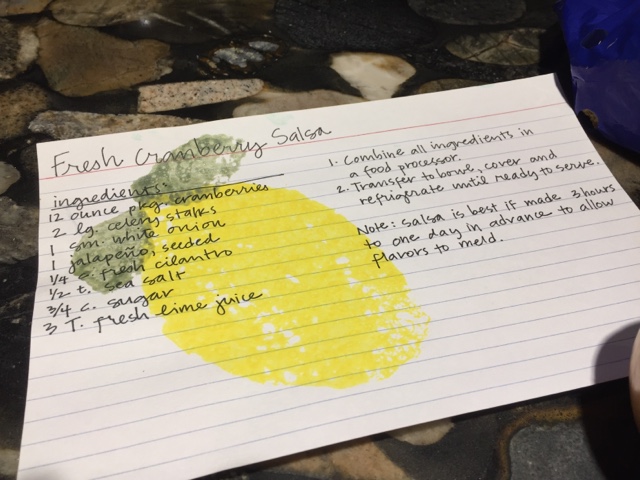 Fresh Cranberry Salsa
ingredients:
12 ounce pkg. cranberries
2 lg. celery stalks
1 sm. white onion
1 jalapeño, seeded
1/4 c. fresh cilantro
1/2 t. sea salt
3/4 c. sugar
3 T. fresh lime juice
1. Combine all ingredients in
a food processor.
2. Transfer to bowl, cover and
refrigerate until ready to serve.
Note: Salsa is best if made 3 hours
to one day in advance to allow
flavors to meld.